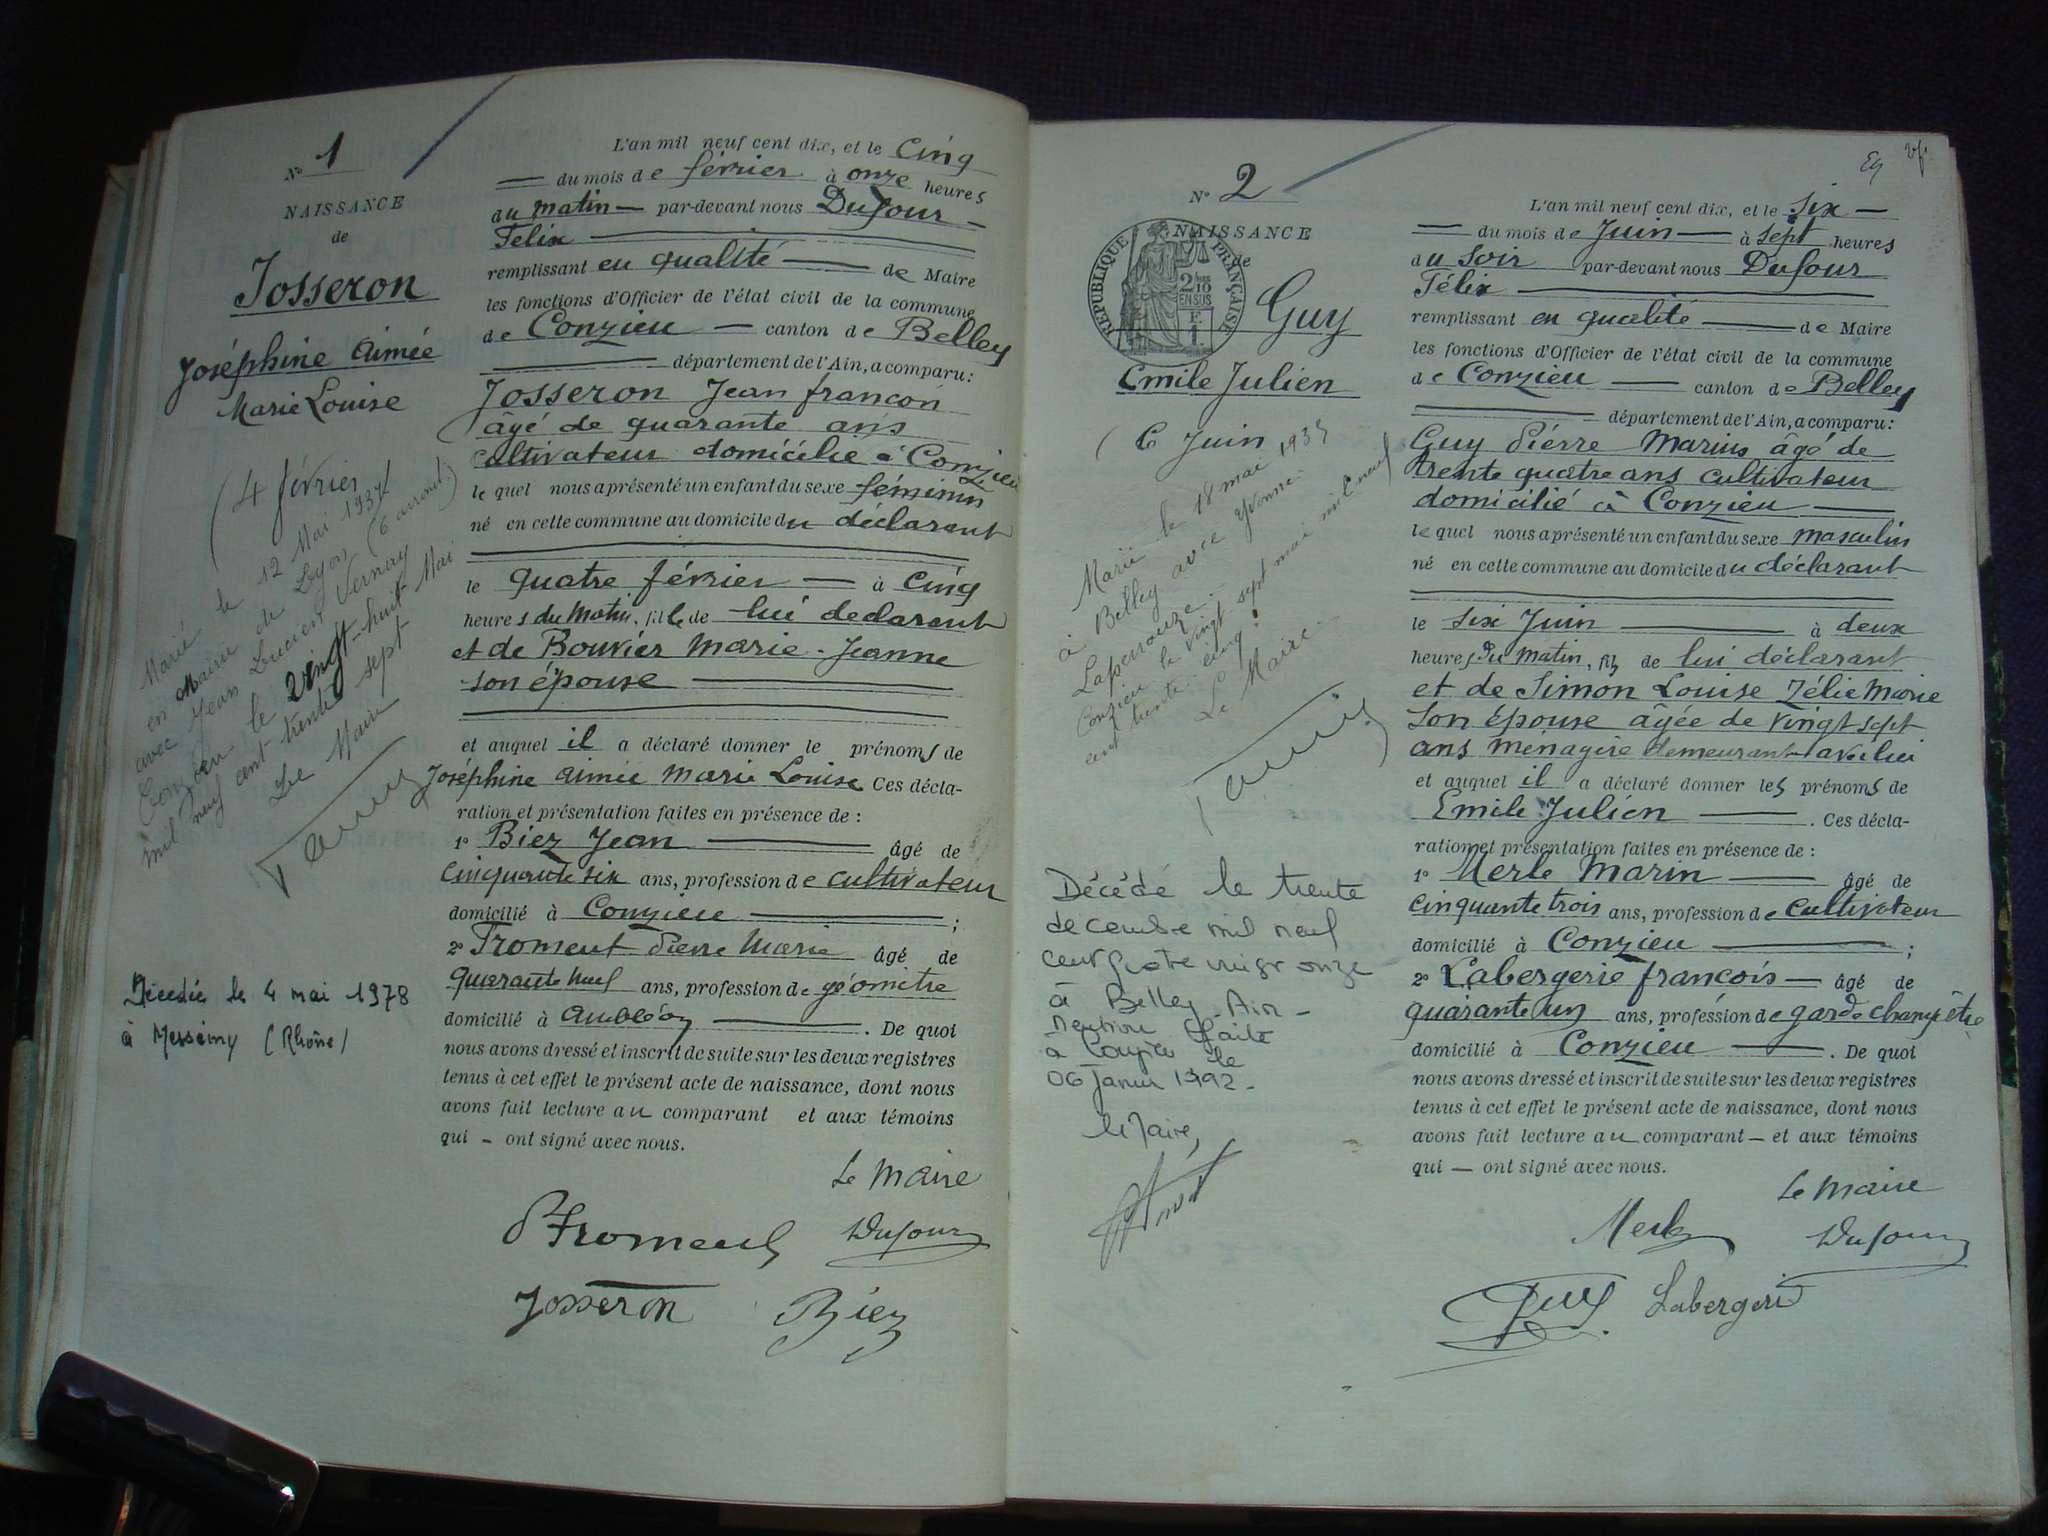 N° 1
NAISSANCE
de
Josseron
Joséphine Aimée
Marie Louise
(4 février)
Marié le 12 Mai 1937
en Mairie de Lyon (6 arrond.)
avec Jean Lucien Vernay
Conzieu le vingt-huit Mai
mil neuf cent trente sept
Le Maire
Décédée le 4 mai 1978
à Messimy (Rhône)
L'an mil neuf cent dix, et le Cinq
— du mois de février à onze heures
du matin — par-devant nous Dufour
Félix
remplissant en qualité — de Maire
les fonctions d'Officier de l'état civil de la commune
de Conzieu — canton de Belley
département de l'Ain, a comparu:
Josseron Jean françon
âgé de quarante ans
cultivateur domicilié à Conzieu
le quel nous a présenté un enfant du sexe féminin
né en cette commune au domicile du déclarant
le quatre février — à cinq
heures du matin, fille de lui declarant
et de Bouvier Marie-Jeanne
son épouse
et auquel il a déclaré donner le prénoms de
Joséphine Aimée Marie Louise Ces décla-
ration et présentation faites en présence de :
1° Biez Jean — âgé de
cinquante six ans, profession de cultivateur
domicilié à Conzieu ;
2° Froment Pierre Marie âgé de
quarante neuf ans, profession de géomètre
domicilié à Ambléon — . De quoi
nous avons dressé et inscrit de suite sur les deux registres
tenus à cet effet le présent acte de naissance, dont nous
avons fait lecture au comparant et aux témoins
qui — ont signé avec nous.
Le Maire
PFroment Dufour
Josseron Biez
N° 2
NAISSANCE
de
RÉPUBLIQUE FRANÇAISE
2/10 EN SUS
Guy
Emile Julien
(6 Juin
Marié le 18 mai 1935
à Belley avec Yvonne
Laperrouze.
Conzieu le vingt sept mai mil neuf
cent trente cinq.
Le Maire
Décédé le trente
decembre mil neuf
cent quatre vingt onze
à Belley Ain -
mention faite
a Conzieu le
06 Janvier 1992 -
le Maire,
L'an mil neuf cent dix, et le Six —
— du mois de Juin — à sept heures
du Soir par-devant nous Dufour
Félix
remplissant en qualité — de Maire
les fonctions d'Officier de l'état civil de la commune
de Conzieu — canton de Belley
département de l'Ain, a comparu:
Guy Pierre Marius âgé de
trente quatre ans cultivateur
domicilié à Conzieu —
le quel nous a présenté un enfant du sexe masculin
né en cette commune au domicile du déclarant
le six Juin — à deux
heures du matin, fils de lui déclarant
et de Simon Louise Zélie Marie
son épouse âgée de vingt sept
ans ménagère demeurant avec lui
et auquel il a déclaré donner les prénoms de
Emile Julien — . Ces décla-
ration et présentation faites en présence de :
1° Merle Marin — âgé de
cinquante trois ans, profession de cultivateur
domicilié à Conzieu — ;
2° Labergerie françois — âgé de
quarante un ans, profession de garde champêtre
domicilié à Conzieu — . De quoi
nous avons dressé et inscrit de suite sur les deux registres
tenus à cet effet le présent acte de naissance, dont nous
avons fait lecture au comparant — et aux témoins
qui — ont signé avec nous.
Le Maire
Merle Dufour
Guy Labergerie